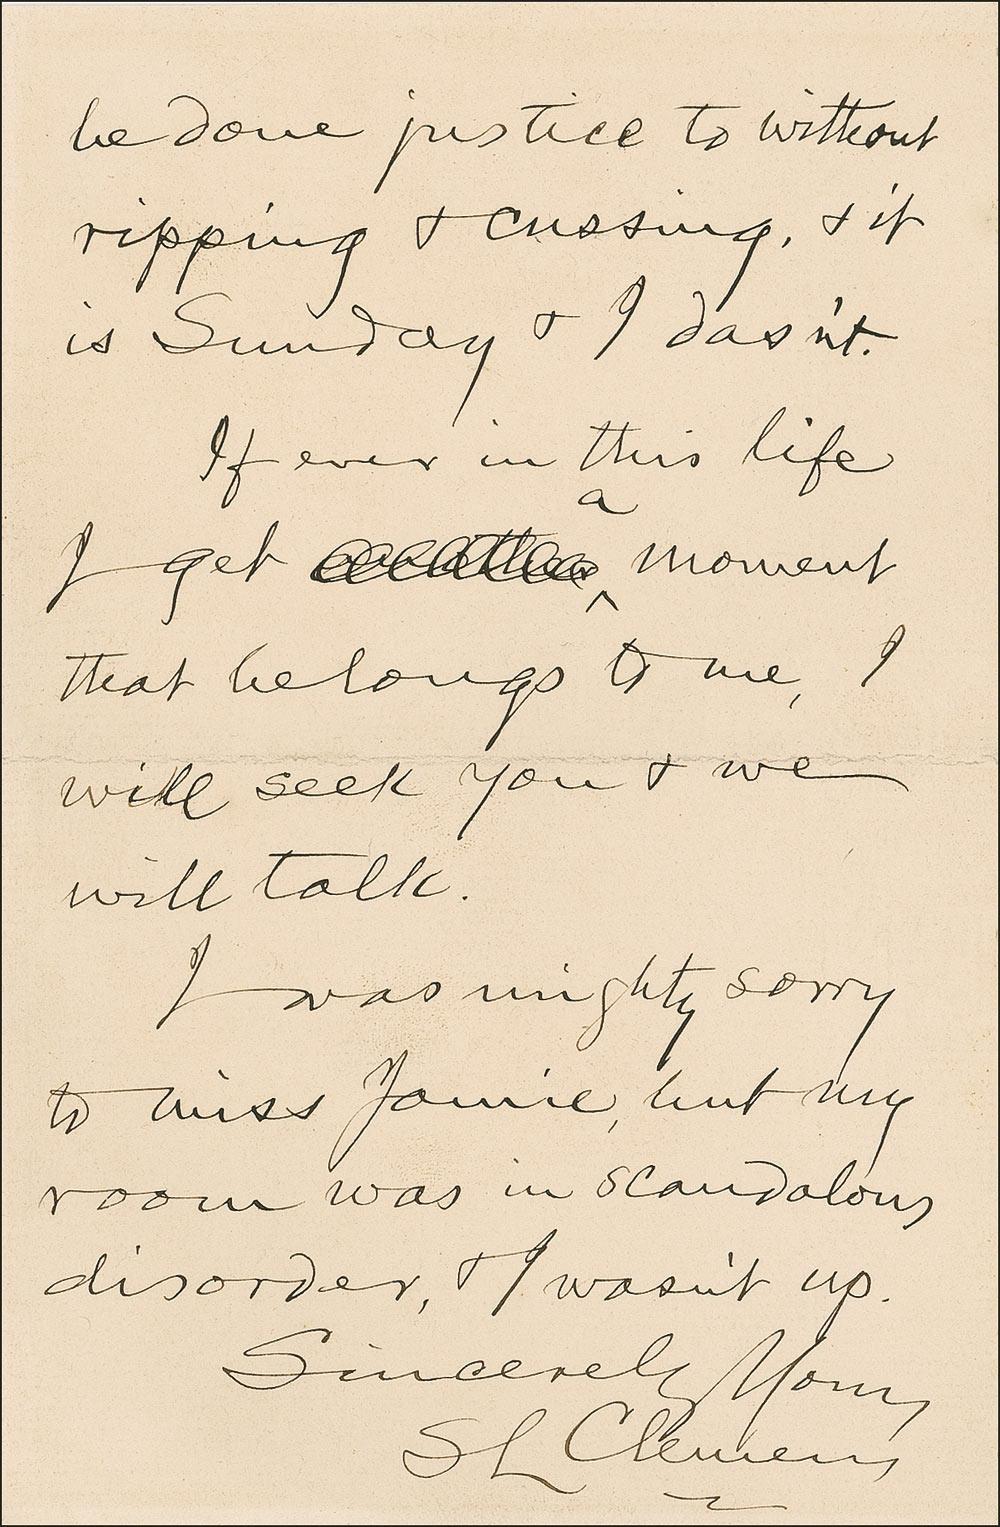 be done justice to without
ripping & cussing, & it
is Sunday & I das n't.
If ever in this life
a
I get moment
that belongs to me, I
will seek you & we
will talk.
I was mighty sorry
to miss Jamie, but my
room was in scandalous
disorder, & I wasn't up.
Sincerely Yours
SL Clemens